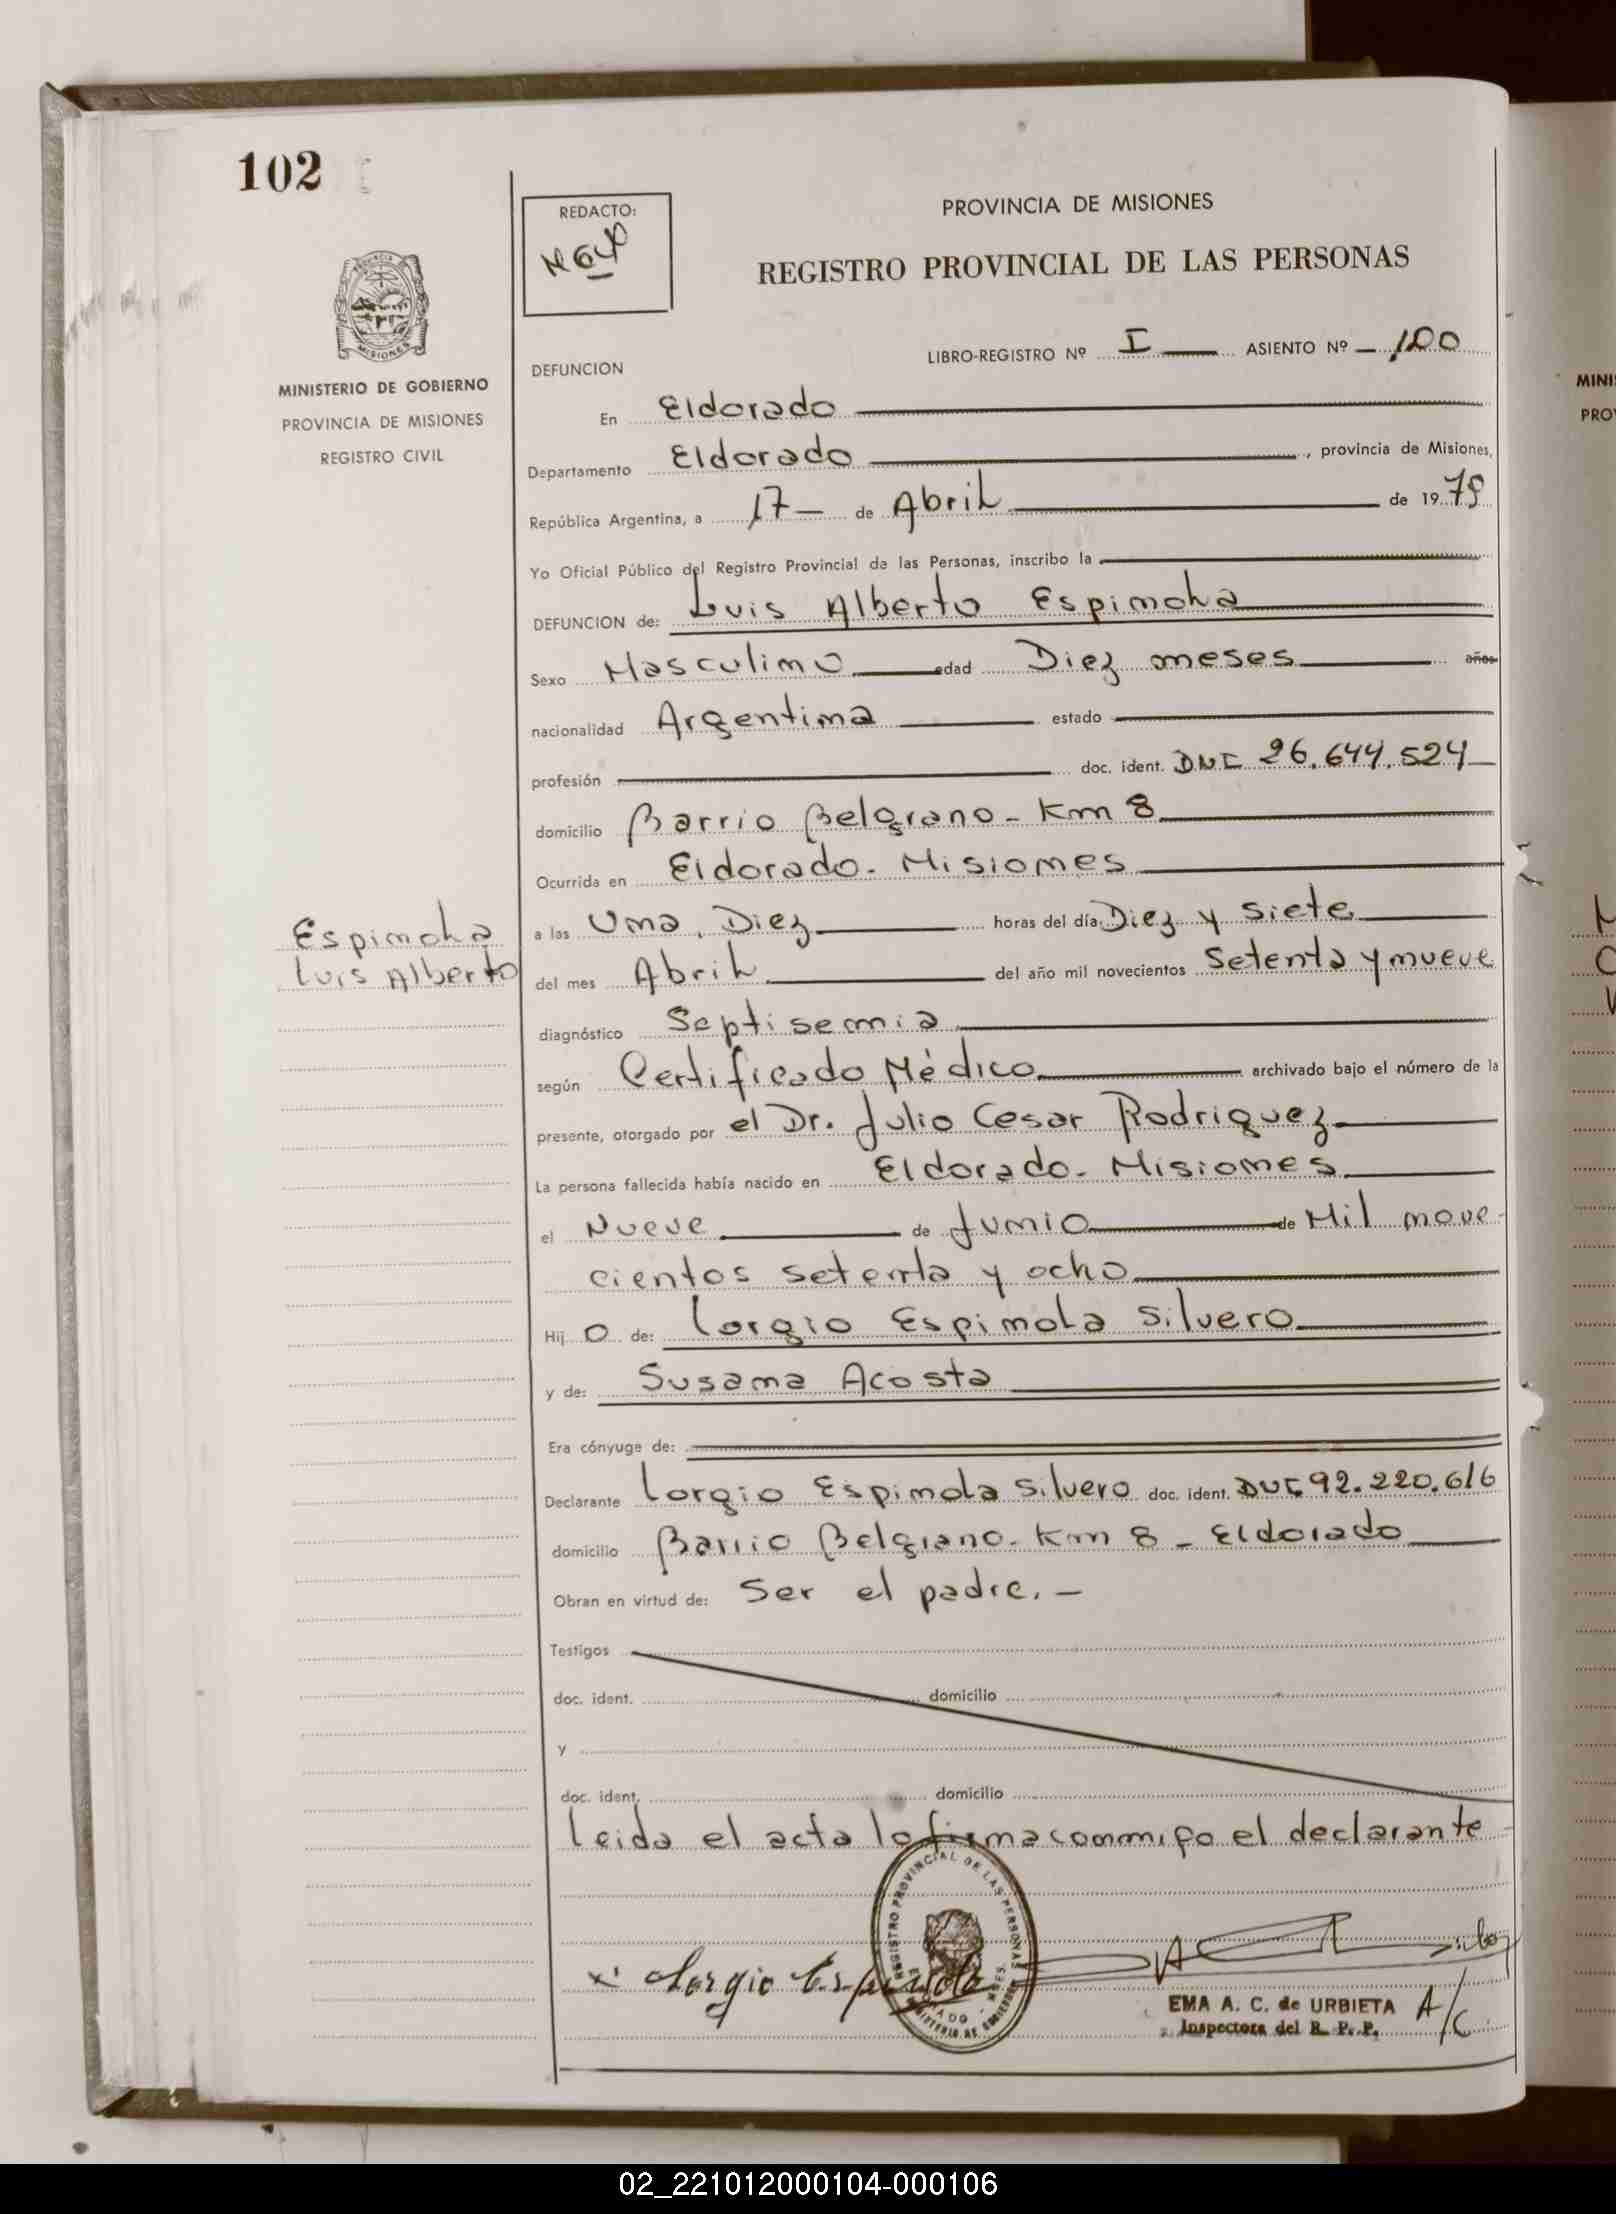 102
REDACTO:
PROVINCIA DE MISIONES
REGISTRO PROVINCIAL DE LAS PERSONAS
MINISTERIO DE GOBIERNO
PROVINCIA DE MISIONES
REGISTRO CIVIL
LIBRO-REGISTRO Nº I ASIENTO Nº 100
DEFUNCION
En Eldorado
Departamento Eldorado, provincia de Misiones,
República Argentina, a 17 de Abril de 1979
Yo Oficial Público del Registro Provincial de las Personas, inscribo la
DEFUNCION de: Luis Alberto Espinola
Sexo Masculino edad Diez meses años
nacionalidad Argentina estado
profesión doc. ident. DNI 26.644.524
domicilio Barrio Belgrano - Km 8
Ocurrida en Eldorado - Misiones
Espinola
Luis Alberto
a las Una, Diez horas del día Diez y siete
del mes Abril del año mil novecientos Setenta y nueve
diagnóstico Septisemia
según Certificado Médico archivado bajo el número de la
presente, otorgado por el Dr. Julio Cesar Rodriguez
La persona fallecida había nacido en Eldorado - Misiones
el Nueve de Junio de Mil nove-
cientos setenta y ocho
Hij o de: Lorgio Espinola Silvero
y de: Susana Acosta
Era cónyuge de:
Declarante Lorgio Espinola Silvero doc. ident. DNI 92.220.616
domicilio Barrio Belgrano - Km 8 - Eldorado
Obran en virtud de: Ser el padre. -
Testigos
doc. ident. domicilio
y
doc. ident. domicilio
Leida el acta lo firma conmigo el declarante
REGISTRO PROVINCIAL DE LAS PERSONAS
Lorgio Espinola
EMA A. C. de URBIETA A/C
Inspectora del R. P. P.
MINIS
PROV
02_221012000104-000106